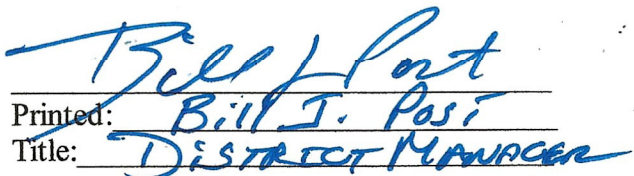 Bill J Post
Printed: Bill J. Post
Title: DISTRICT MANAGER